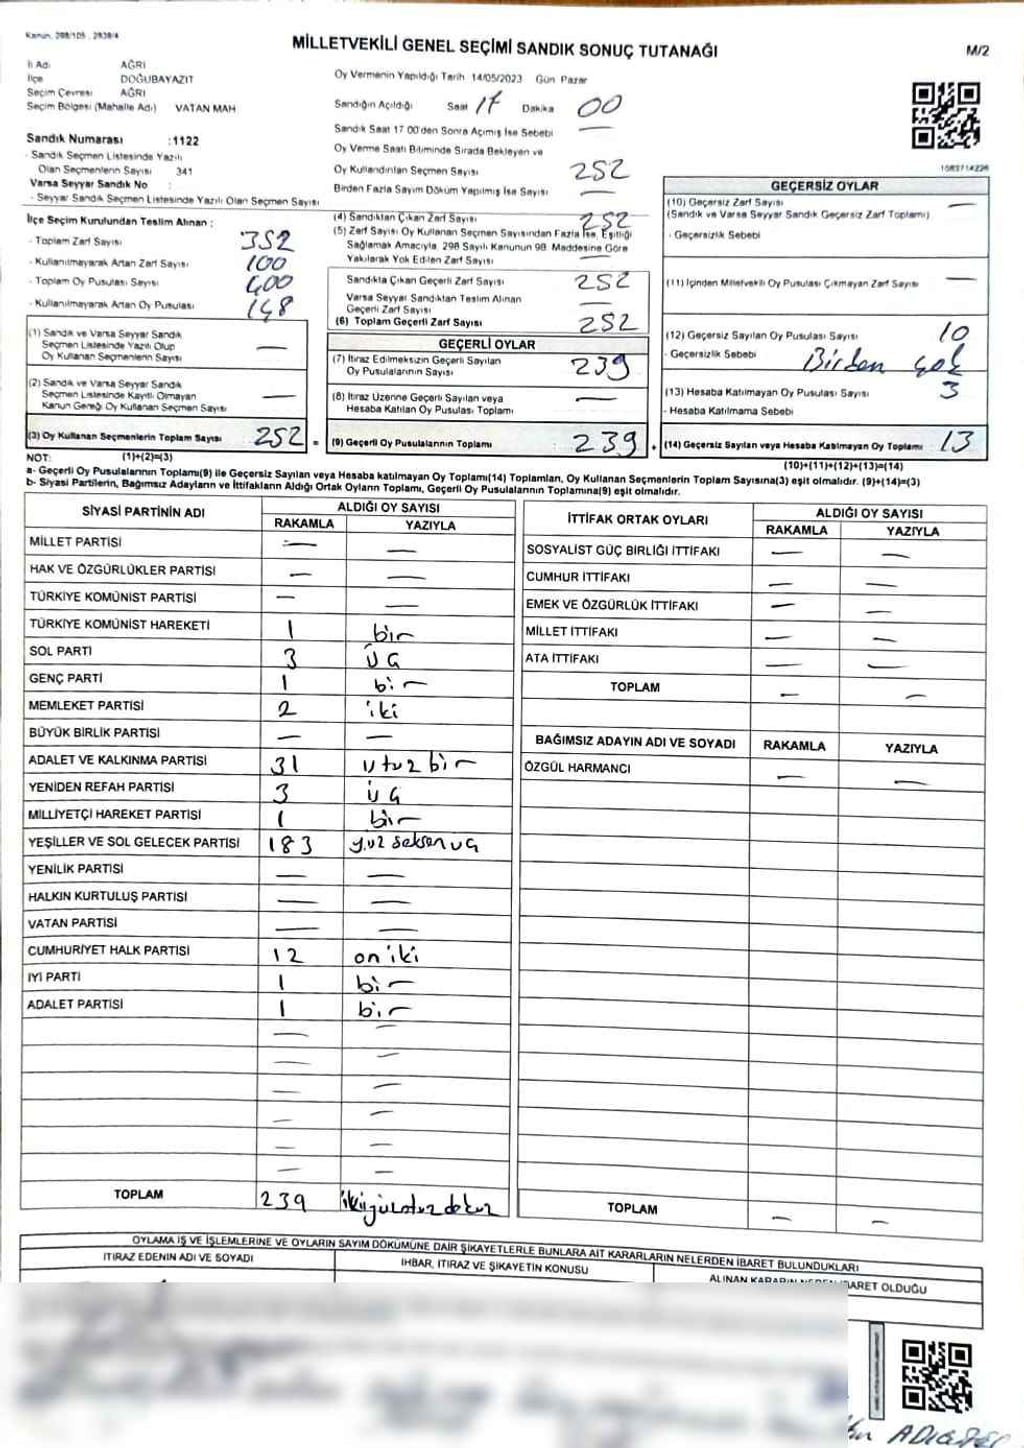 Kanun, 298/105 , 2839/4
MİLLETVEKİLİ GENEL SEÇİMİ SANDIK SONUÇ TUTANAĞI
M/2
İl Adı AĞRI
İlçe DOĞUBAYAZIT
Seçim Çevresi AĞRI
Seçim Bölgesi (Mahalle Adı) VATAN MAH
Oy Vermenin Yapıldığı Tarih 14/05/2023 Gün Pazar
Sandığın Açıldığı Saat 17 Dakika 00
Sandık Saat 17 00'den Sonra Açımış İse Sebebi —
Oy Verme Saati Bitiminde Sırada Bekleyen ve
Oy Kullandırılan Seçmen Sayısı 252
Birden Fazla Sayım Döküm Yapılmış İse Sayısı —
Sandık Numarası :1122
- Sandık Seçmen Listesinde Yazılı
Olan Seçmenlerin Sayısı 341
Varsa Seyyar Sandık No :
- Seyyar Sandık Seçmen Listesinde Yazılı Olan Seçmen Sayısı
İlçe Seçim Kurulundan Teslim Alınan :
- Toplam Zarf Sayısı 352
- Kullanılmayarak Artan Zarf Sayısı 100
- Toplam Oy Pusulası Sayısı 400
- Kullanılmayarak Artan Oy Pusulası 148
(1) Sandık ve Varsa Seyyar Sandık
Seçmen Listesinde Yazılı Olup
Oy Kullanan Seçmenlerin Sayısı —
(2) Sandık ve Varsa Seyyar Sandık
Seçmen Listesinde Kayıtlı Olmayan
Kanun Gereği Oy Kullanan Seçmen Sayısı —
(3) Oy Kullanan Seçmenlerin Toplam Sayısı 252 =
(4) Sandıktan Çıkan Zarf Sayısı 252
(5) Zarf Sayısı Oy Kullanan Seçmen Sayısından Fazla İse, Eşitliği
Sağlamak Amacıyla, 298 Sayılı Kanunun 98. Maddesine Göre
Yakılarak Yok Edilen Zarf Sayısı —
Sandıkta Çıkan Geçerli Zarf Sayısı 252
Varsa Seyyar Sandıktan Teslim Alınan
Geçerli Zarf Sayısı —
(6) Toplam Geçerli Zarf Sayısı 252
GEÇERLİ OYLAR
(7) İtiraz Edilmeksizin Geçerli Sayılan
Oy Pusulalarının Sayısı 239
(8) İtiraz Üzerine Geçerli Sayılan veya
Hesaba Katılan Oy Pusulası Toplamı —
(9) Geçerli Oy Pusulalarının Toplamı 239 +
1583714226
GEÇERSİZ OYLAR
(10) Geçersiz Zarf Sayısı —
(Sandık ve Varsa Seyyar Sandık Geçersiz Zarf Toplamı)
- Geçersizlik Sebebi
(11) İçinden Milletvekili Oy Pusulası Çıkmayan Zarf Sayısı —
(12) Geçersiz Sayılan Oy Pusulası Sayısı 10
- Geçersizlik Sebebi Birden çok
(13) Hesaba Katılmayan Oy Pusulası Sayısı 3
- Hesaba Katılmama Sebebi
(14) Geçersiz Sayılan veya Hesaba Katılmayan Oy Toplamı 13
NOT: (1)+(2)=(3)
(10)+(11)+(12)+(13)=(14)
a- Geçerli Oy Pusulalarının Toplamı(9) ile Geçersiz Sayılan veya Hesaba katılmayan Oy Toplamı(14) Toplamları, Oy Kullanan Seçmenlerin Toplam Sayısına(3) eşit olmalıdır. (9)+(14)=(3)
b- Siyasi Partilerin, Bağımsız Adayların ve İttifakların Aldığı Ortak Oyların Toplamı, Geçerli Oy Pusulalarının Toplamına(9) eşit olmalıdır.
SİYASİ PARTİNİN ADI ALDIĞI OY SAYISI
RAKAMLA YAZIYLA
MİLLET PARTİSİ — —
HAK VE ÖZGÜRLÜKLER PARTİSİ — —
TÜRKİYE KOMÜNİST PARTİSİ — —
TÜRKİYE KOMÜNİST HAREKETİ 1 bir
SOL PARTİ 3 üç
GENÇ PARTİ 1 bir
MEMLEKET PARTİSİ 2 iki
BÜYÜK BİRLİK PARTİSİ — —
ADALET VE KALKINMA PARTİSİ 31 utuz bir
YENİDEN REFAH PARTİSİ 3 üç
MİLLİYETÇİ HAREKET PARTİSİ 1 bir
YEŞİLLER VE SOL GELECEK PARTİSİ 183 yüz seksen üç
YENİLİK PARTİSİ — —
HALKIN KURTULUŞ PARTİSİ — —
VATAN PARTİSİ — —
CUMHURİYET HALK PARTİSİ 12 on iki
İYİ PARTİ 1 bir
ADALET PARTİSİ 1 bir
— —
— —
— —
— —
— —
— —
TOPLAM 239 ikiyüzotuz dokuz
İTTİFAK ORTAK OYLARI ALDIĞI OY SAYISI
RAKAMLA YAZIYLA
SOSYALİST GÜÇ BİRLİĞİ İTTİFAKI — —
CUMHUR İTTİFAKI — —
EMEK VE ÖZGÜRLÜK İTTİFAKI — —
MİLLET İTTİFAKI — —
ATA İTTİFAKI — —
TOPLAM — —
BAĞIMSIZ ADAYIN ADI VE SOYADI RAKAMLA YAZIYLA
ÖZGÜL HARMANCI — —
TOPLAM — —
OYLAMA İŞ VE İŞLEMLERİNE VE OYLARIN SAYIM DÖKÜMÜNE DAİR ŞİKAYETLERLE BUNLARA AİT KARARLARIN NELERDEN İBARET BULUNDUKLARI
İTİRAZ EDENİN ADI VE SOYADI İHBAR, İTİRAZ VE ŞİKAYETİN KONUSU ALINAN KARARIN NEDEN İBARET OLDUĞU